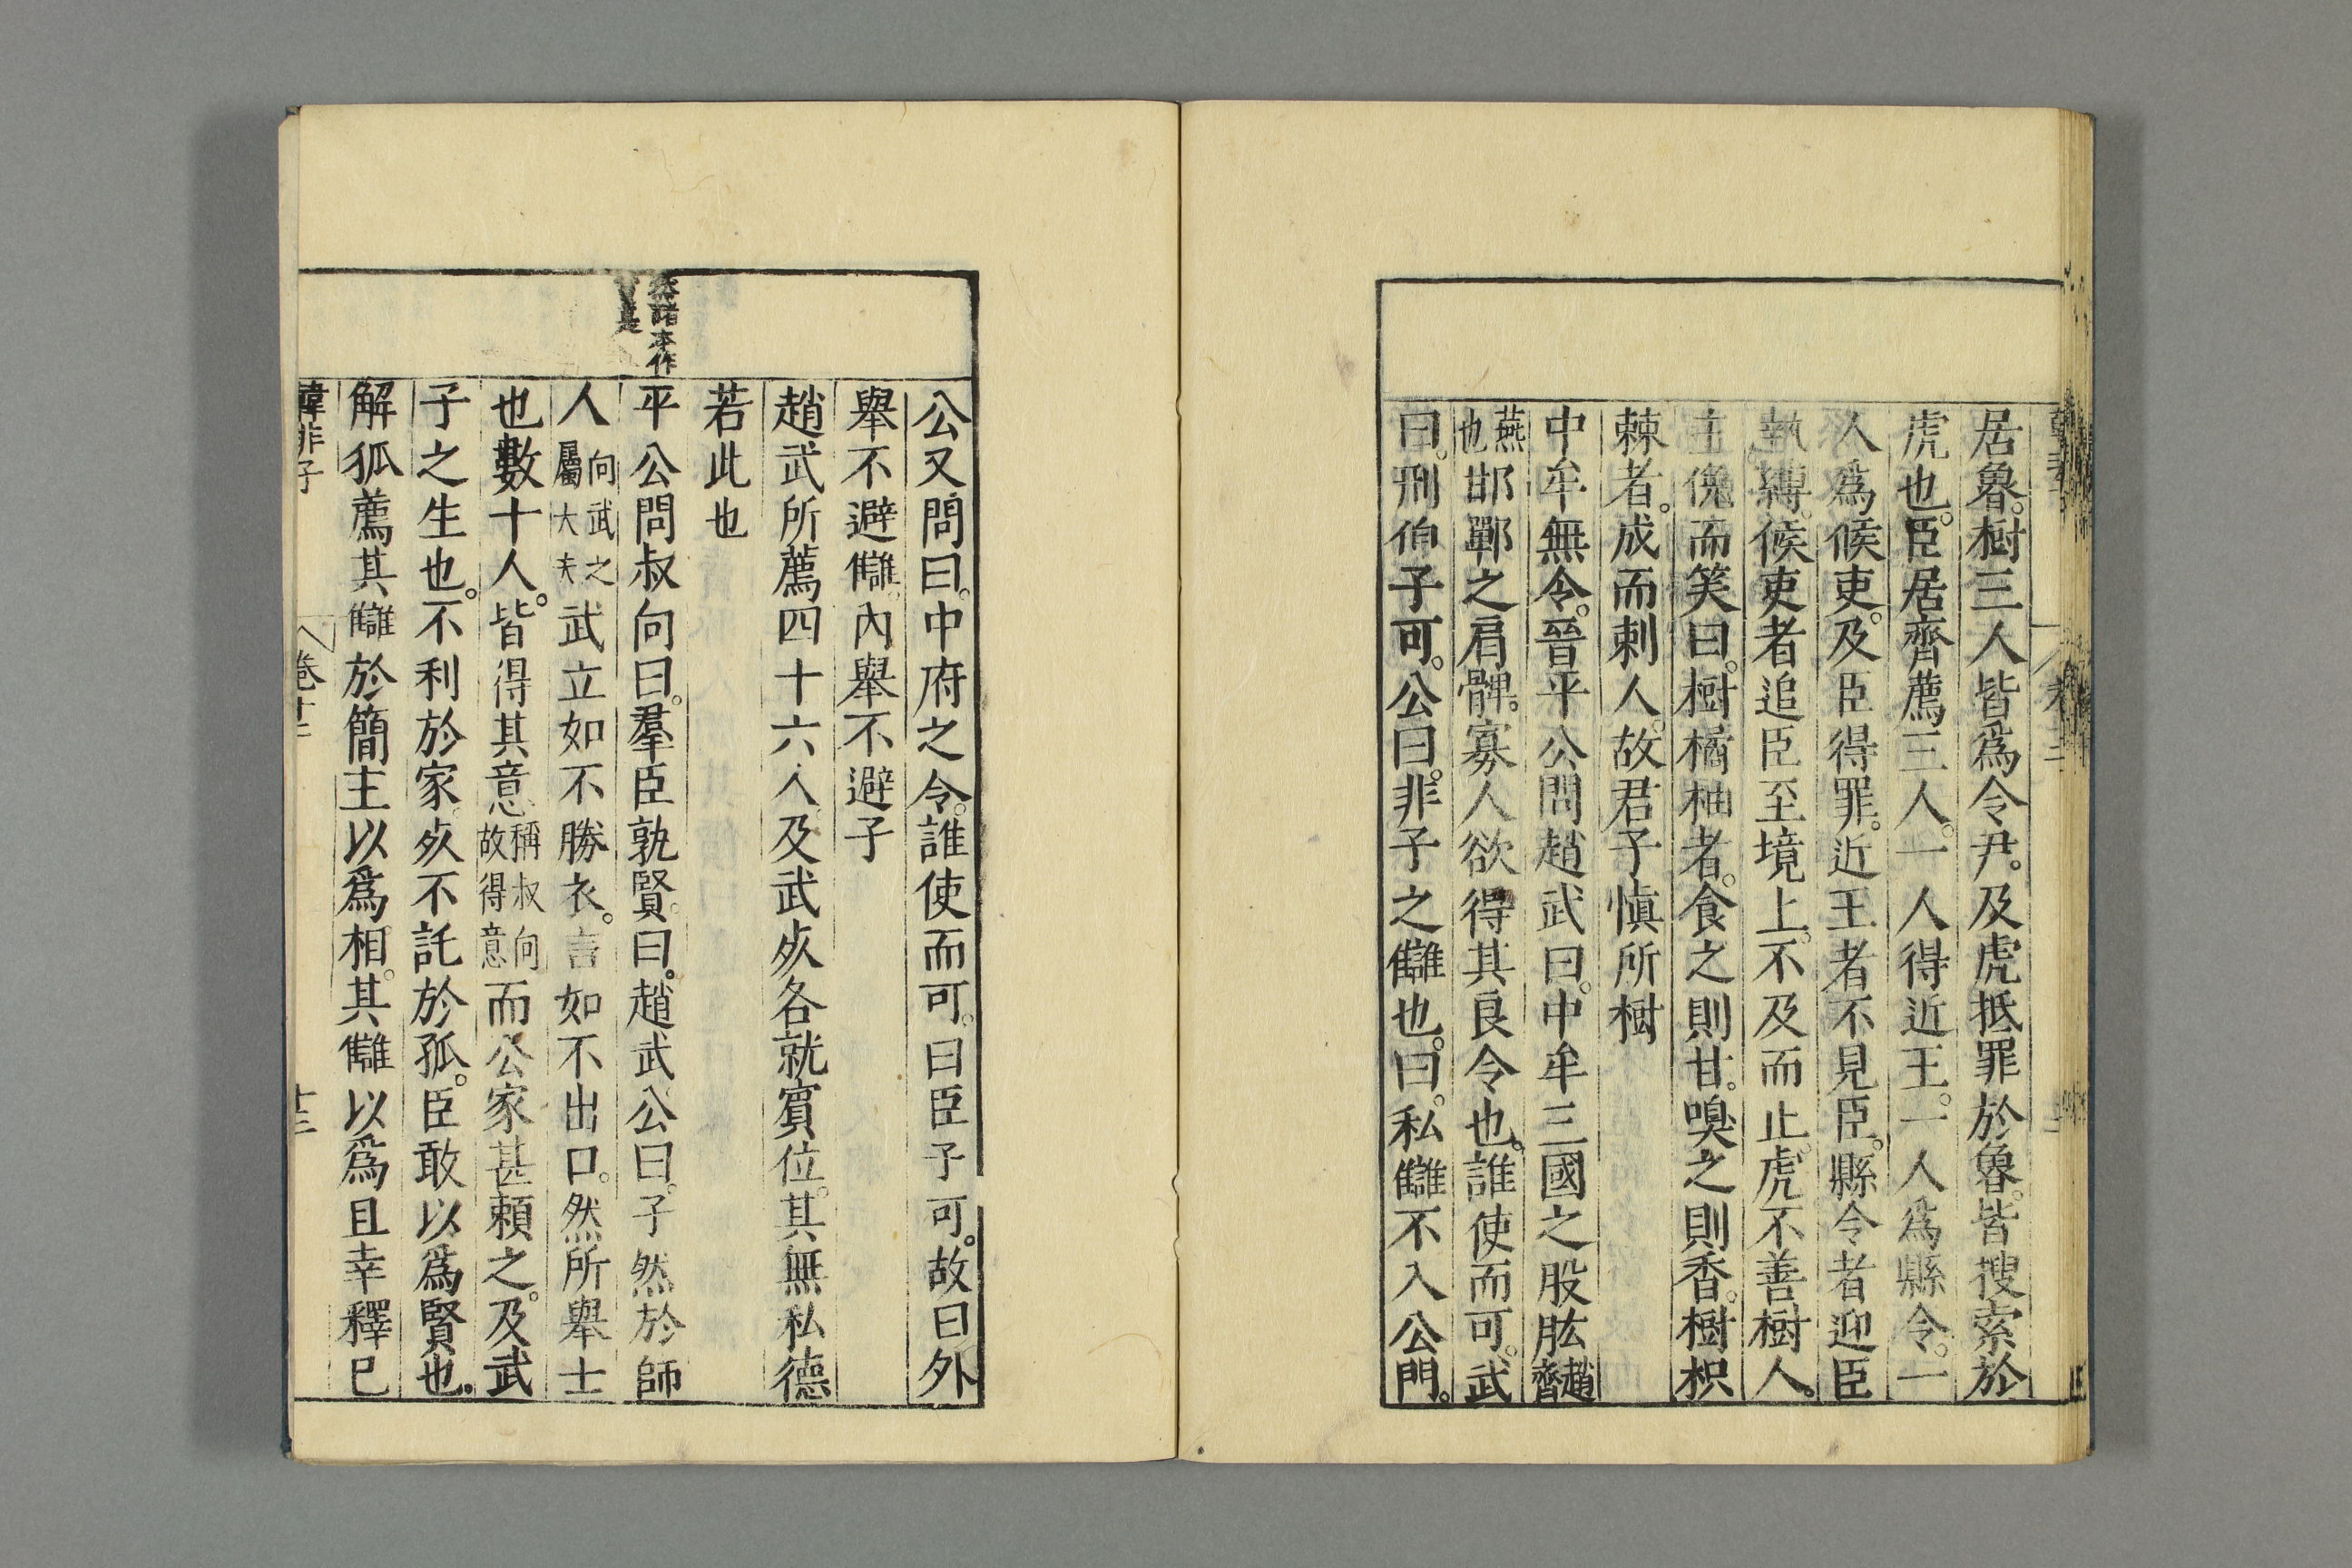 居魯。樹三人皆爲令尹。及虎抵罪於魯。皆搜索於
虎也。臣居齊薦三人。一人得近王。一人爲縣令。一
人爲候吏。及臣得罪。近王者不見臣。縣令者迎臣
執縛。候吏者追臣至境上。不及而止。虎不善樹人。
主俛而笑曰。樹橘柚者。食之則甘。嗅之則香。樹枳
棘者。成而刺人。故君子愼所樹
中牟無令。晉平公問趙武曰。中牟三國之股肱趙齊
燕也邯鄲之肩髀。寡人欲得其良令也。誰使而可。武
曰。刑伯子可。公曰。非子之讎也。曰。私讎不入公門。
公又問曰。中府之令。誰使而可。曰臣子可。故曰外
舉不避讎。內舉不避子
趙武所薦四十六人。及武死各就賓位。其無私德
若此也
諸本作
平公問叔向曰。羣臣孰賢。曰。趙武。公曰。子然於師
人向武之屬大夫之武立如不勝衣。言如不出口。然所舉士
也數十人。皆得其意稱叔向故得意而公家甚賴之。及武
子之生也。不利於家。死不託於孤。臣敢以爲賢也。
解狐薦其讎於簡主以爲相。其讎以爲且幸釋巳
韓非子
卷十二
十三